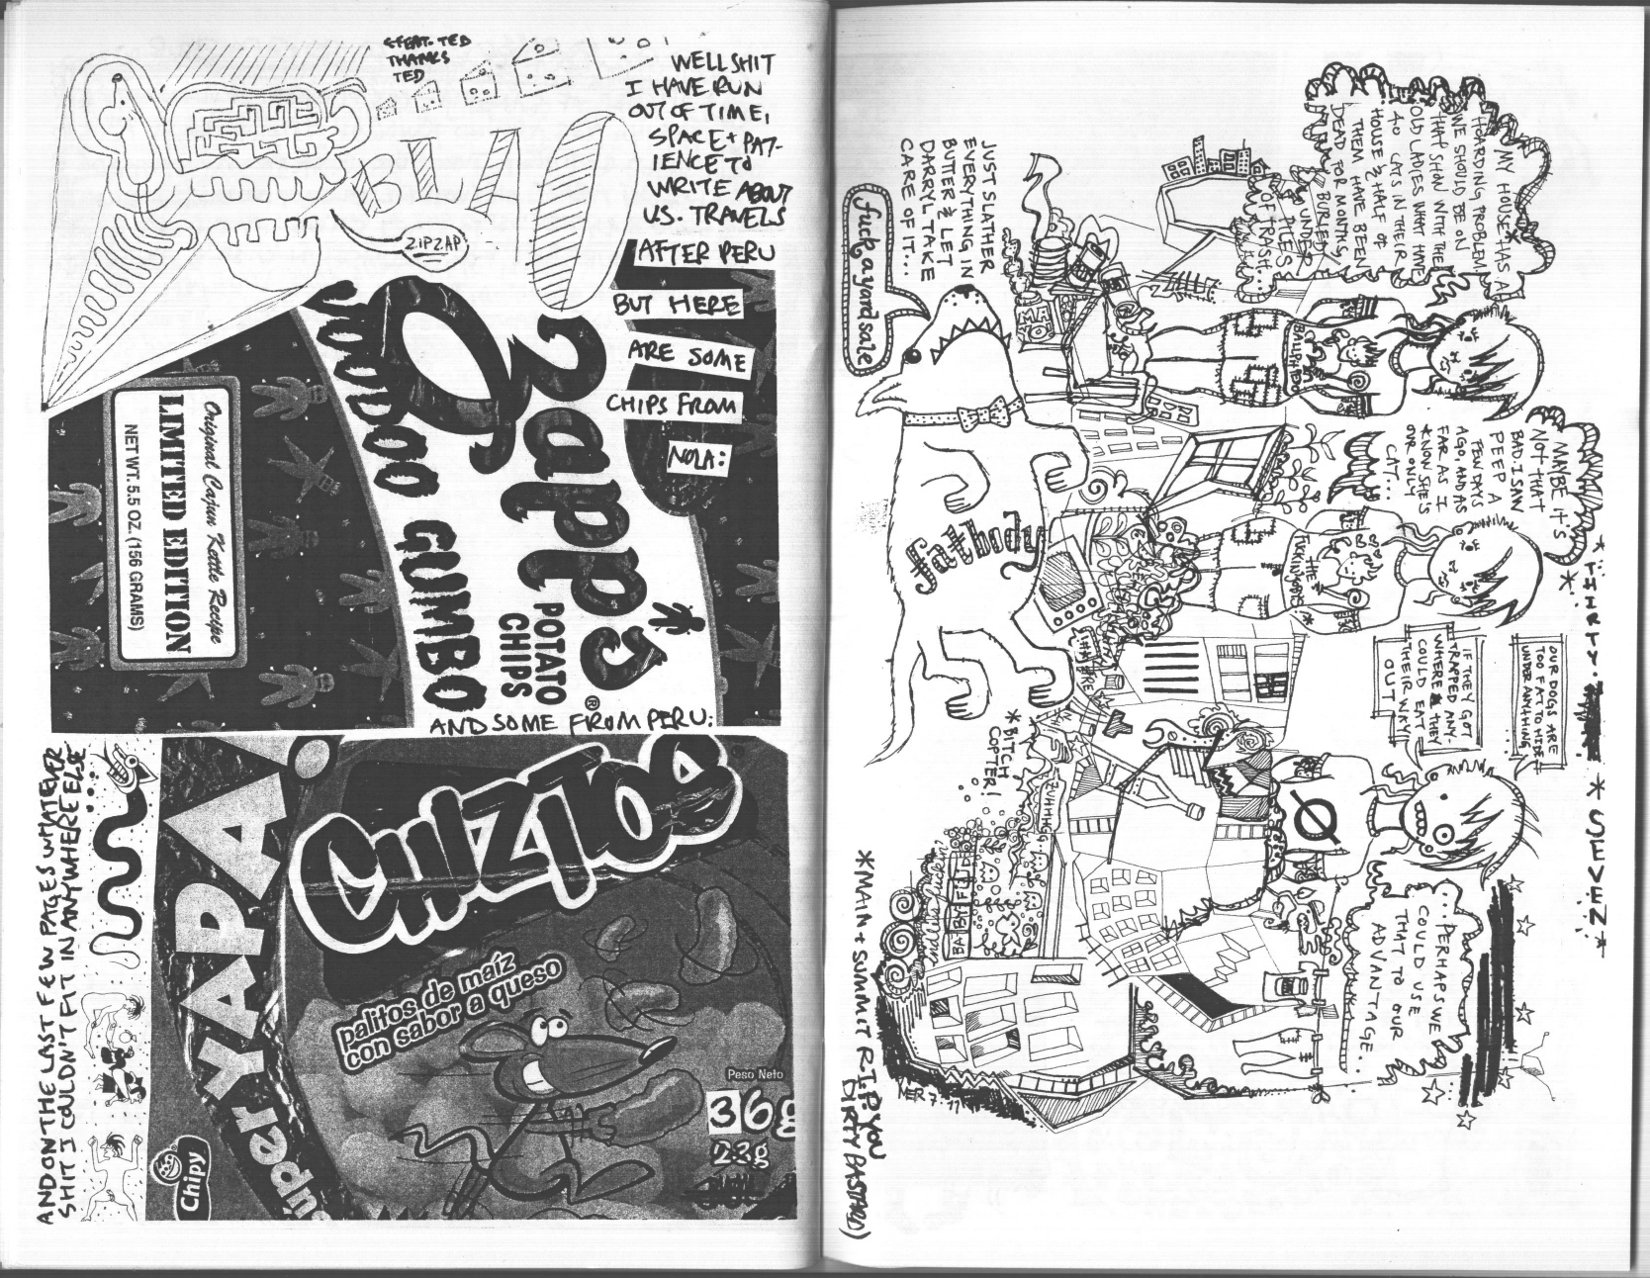 & FEAT. TED
THANKS
TED
WELL SHIT
I HAVE RUN
OUT OF TIME,
SPACE + PAT-
IENCE TO
WRITE ABOUT
U.S. TRAVELS
AFTER PERU
BUT HERE
ARE SOME
CHIPS FROM
NOLA:
BLAO
ZIPZAP
VOODOO GUMBO
Zapp's
POTATO
CHIPS
®
Original Cajun Kettle Recipe
LIMITED EDITION
NET WT. 5.5 OZ. (156 GRAMS)
AND SOME FROM PERU:
YAPA!
CHIZITOS
palitos de maíz
con sabor a queso
Peso Neto
36g
23g
Chipy
AND ON THE LAST FEW PAGES WHATEVER
SHIT I COULDN'T FIT IN ANYWHERE ELSE
* THIRTY-
* SEVEN *
MY HOUSE HAS A
HOARDING PROBLEM.
WE SHOULD BE ON
THAT SHAN WITH THE
OLD LADIES WHAT HAVE
40 CATS IN THEIR
HOUSE & HALF OF
THEM HAVE BEEN
DEAD FOR MONTHS,
BURIED
UNDER
PILES
OF TRASH...
MAYBE IT'S
NOT THAT
BAD. I SAW
PEEP A
FEW DAYS
AGO, AND AS
FAR AS I
KNOW SHE'S
OUR ONLY
CAT...
OUR DOGS ARE
TOO FAT TO HIDE
UNDER ANYTHING
IF THEY GOT
TRAPPED ANY-
WHERE THEY
COULD EAT
THEIR WAY
OUT
...PERHAPS WE
COULD USE
THAT TO OUR
ADVANTAGE...
THE
FUCKIN
MAYO
JUST SLATHER
EVERYTHING IN
BUTTER & LET
DARRYL TAKE
CARE OF IT...
fuck a yard sale
fatbody
* BITCH
COPTER!
* MAIN + SUMMIT R.I.P. YOU
DIRTY BASTARD)